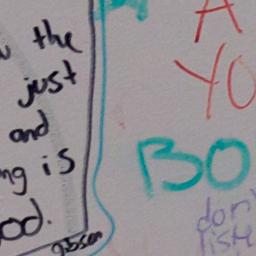 the
just
and
ng is
od.
gibson
A
YO
BO
don'
liste